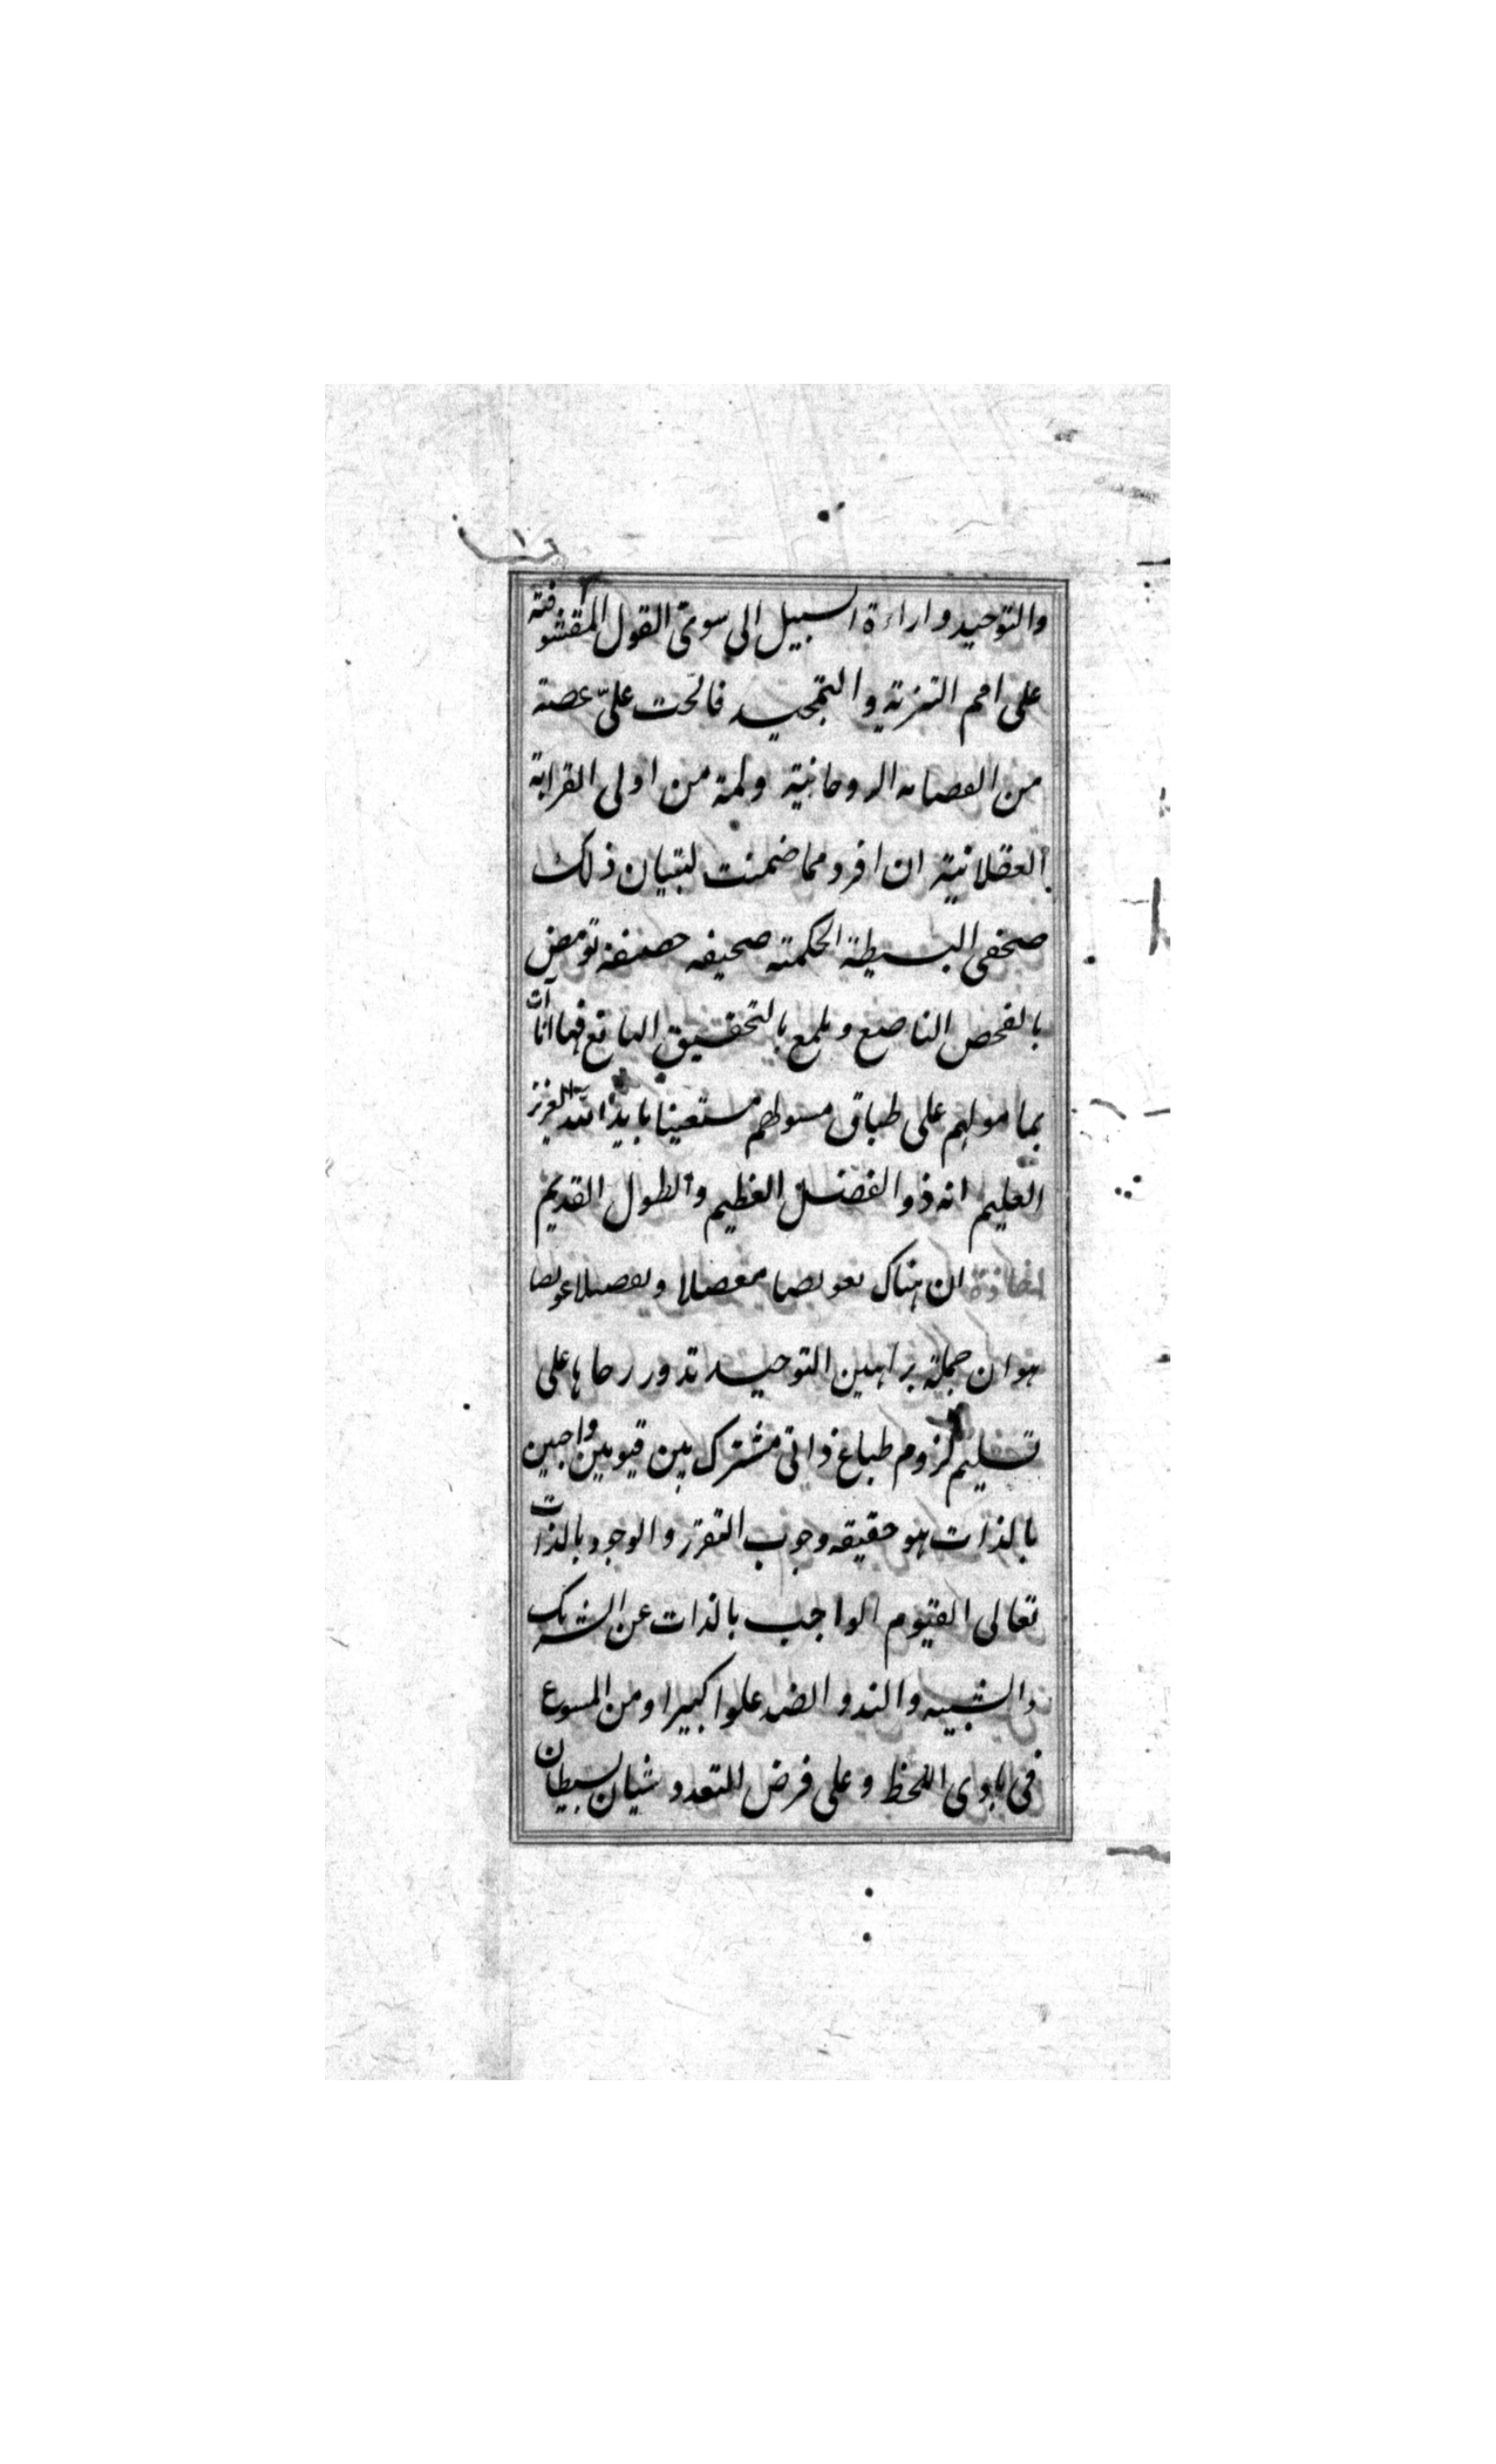 والتوحيد واراءة السبيل الى سوى القول المقشو
على امم التنزيه والتمجيد فالحت علىّ عصبة
من العصابه الروحانية ولمة من اولى القرابة
العقلانية ان افرد مما ضمنت لتبيان ذلك
صحفى البسيطة الحكمته صحيفه حصيفه تومض
بالفحص الناصع ويلمع بالتحقيق اليانع فها انا آت
بمامولهم على طباق مسولهم مستعينا بايد الله العزيز
العليم انه ذو الفضل العظيم والطول القديم
ان هناك تعويصا معضلا وتعضيلا عويصا
هو ان جملة براهين التوحيد تدور رحاها على
تسليم لزوم طباع ذاتى مشترك بين قيومين واجبين
بالذات هو حقيقه وجوب التقرر والوجود بالذات
تعالى القيوم الواجب بالذات عن الشريك
والشبيه والند والضد علوا كبيرا ومن المسوغ
فى بادى اللحظ وعلى فرض التعدد شيان بسيطان